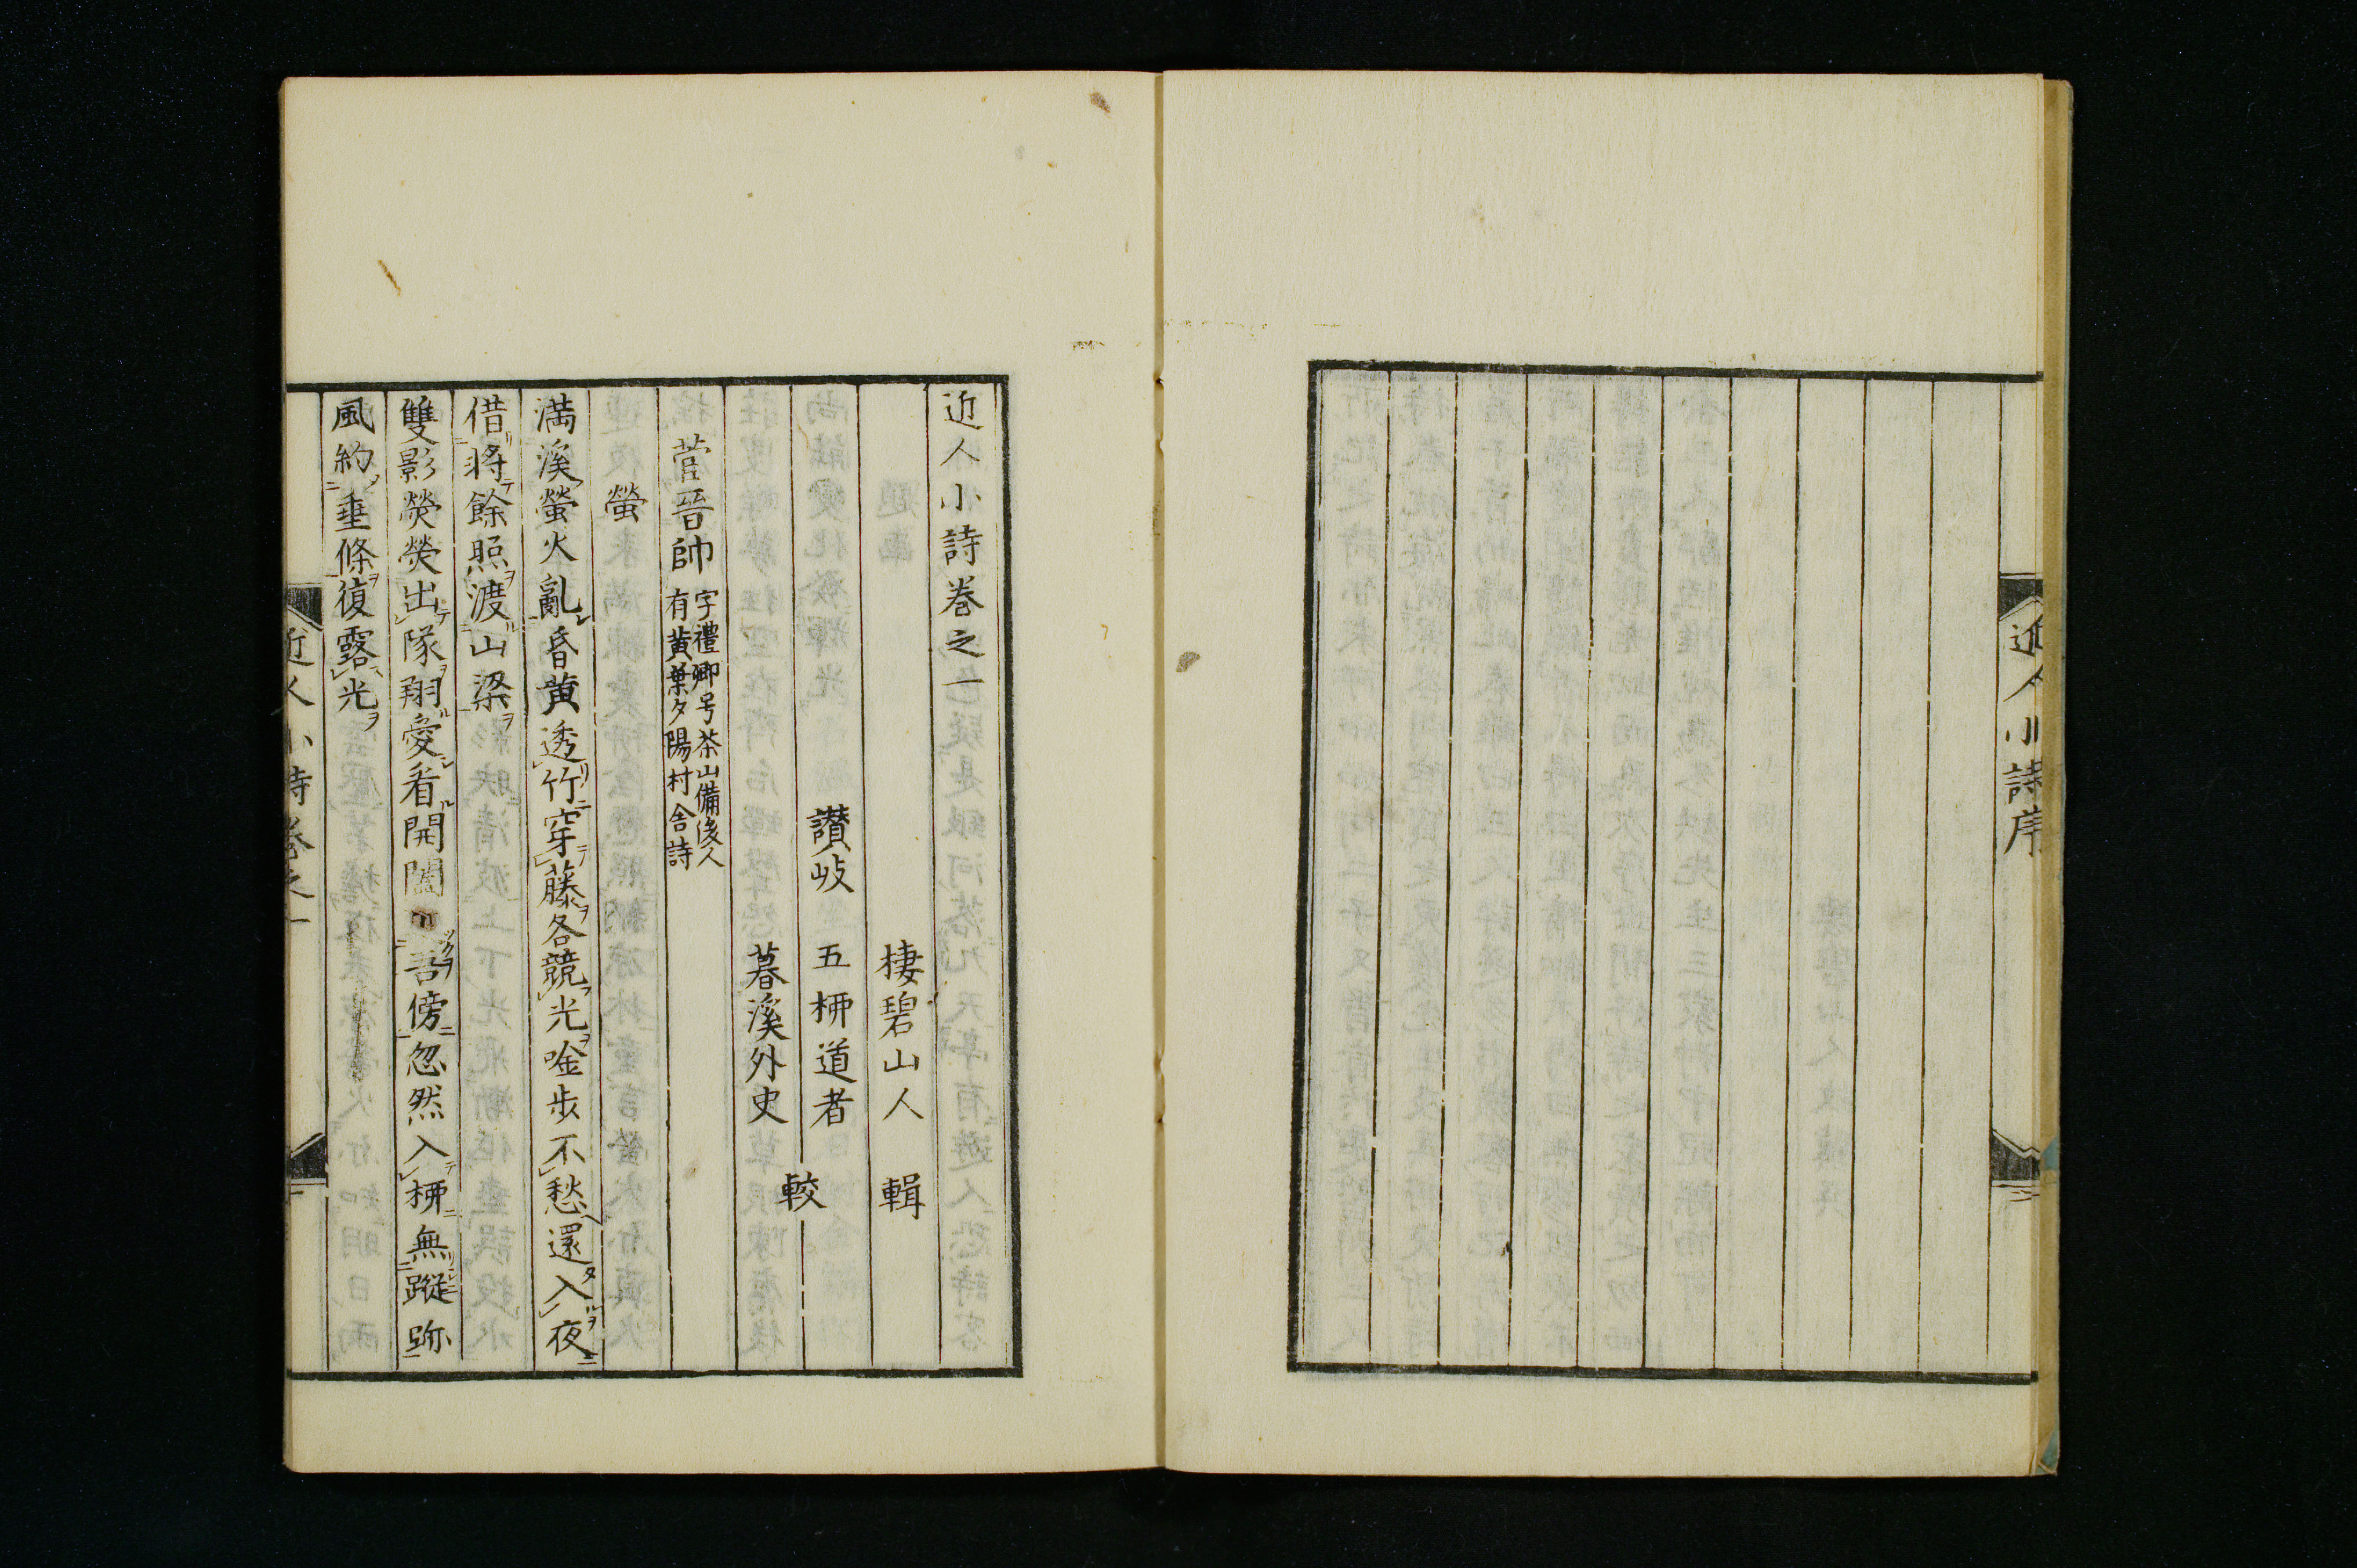 近人小詩序
近人小詩卷之一
棲碧山人 輯
讃岐 五柳道者
暮溪外史
較
菅晉帥
字禮卿号茶山備後人
有黄葉夕陽村舎詩
螢
満溪螢火亂昏黄透竹穿藤各競光唫歩不愁還入夜
借將餘照渡山梁
雙影熒熒出隊翔愛看開闔 吾傍忽然入柳無蹤跡
風約垂條復露光
近人小詩卷之一